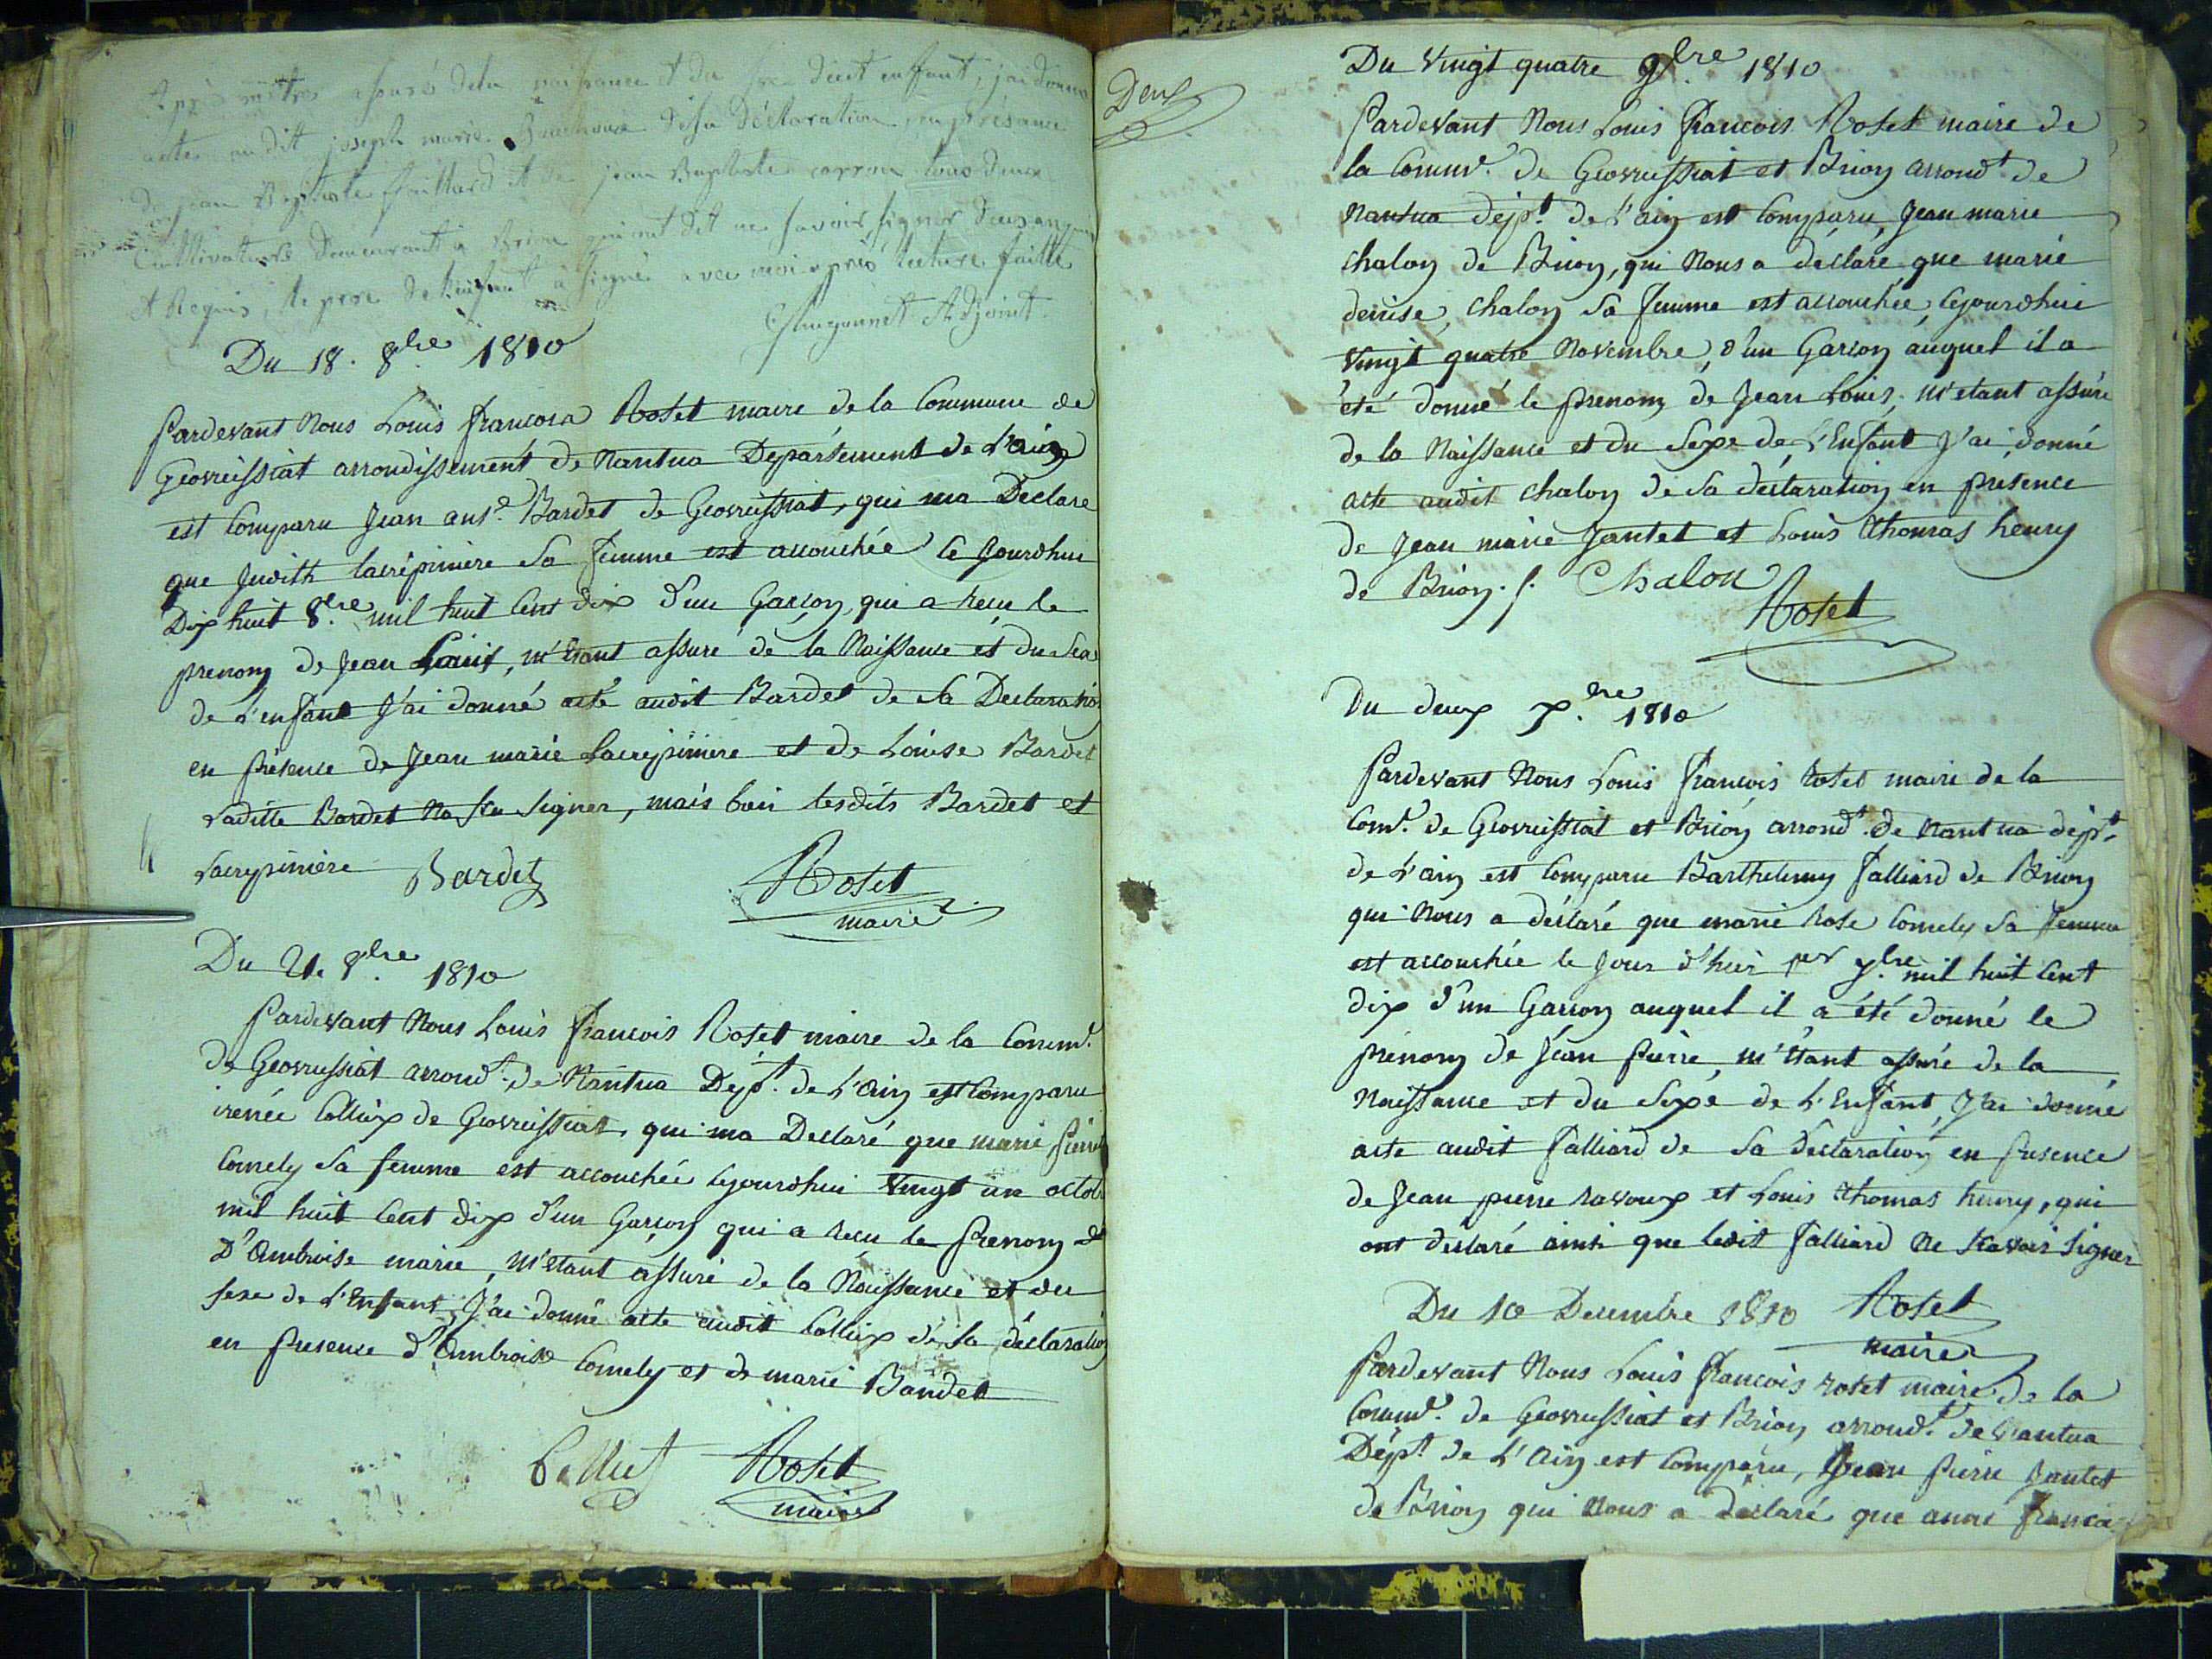 Après mêtre assuré dela naissance et du sexe dudit enfant, jai donné
acte au dit joseph marie desa Déclaration, en présance
de jean Baptiste faillard et de jean Baptiste carron tous deux
Cultivateurs demeurant à Brion qui ont dit ne savoir signer
et Requis, le pere de l'enfant à signé avec moi après lecture faitte
Adjoint
Du 18. 8bre 1810
Pardevant Nous Louis Francois Roset maire de la Commune de
Geovreissiat arrondissement de Nantua Département de L'ain
est Comparu Jean ant.e Bardet de Geovreissiat, qui ma Déclare
que Judith lacrépiniere Sa femme est accouchée Ce Jourdhui
Dix huit 8.bre mil huit Cent dix d'un Garçon, qui a reçu le
prenom de Jean Louis, m'étant assuré de la Naissance et du Sexe
de L'enfant J'ai donné acte audit Bardet de Sa Déclaration
en présence de Jean marie Lacrepiniere et de Louise Bardet
Laditte Bardet Na scu Signer, mais bien lesdits Bardet et
Lacrepiniere Bardet Roset
maire
Du 21. 8bre 1810
Pardevant Nous Louis François Roset maire de la Comm.e
de Geovreissiat arrond.t de Nantua Dép.t de L'Ain est Comparu
irenée Colliex de Geovreissiat, qui ma Declaré que marie Pierrette
Comely Sa femme est accouchée Cejourdhui Vingt un octob
mil huit Cent dix d'un Garçon qui a reçu le prenom de
D'Ambroise marie, M'étant assuré de la Naissance et du
sexe de L'Enfant, J'ai donné acte audit Colliex de Sa déclaration
en presence d'Ambroise Comely et de marie Bardet
Roset
maire
Deux
Du Vingt quatre 9bre 1810
Pardevant Nous Louis François Roset maire de
la Comm.e de Geovreissiat et Brion arrond.t de
Nantua dép.t de L'ain est Comparu, Jean marie
chalon de Brion, qui Nous a déclaré que marie
denise, chalon Sa femme est accouchée, Cejourdhui
Vingt quatre Novembre, d'un Garcon auquel il a
été donné le prenom de Jean Louis, M'étant assuré
de la Naissance et du Sexe de L'Enfant J'ai donné
acte audit chalon de Sa déclaration en présence
de Jean marie Jantet et Louis Thomas henry
de Brion. /. Chalon
Roset
Du deux X.bre 1810
Pardevant Nous Louis François Roset maire de la
Com.e de Geovreissiat et Brion arrond.t de Nantua dép.t
de L'ain est Comparu Barthelemy Falliard de Brion
qui Nous a déclaré que marie Rose Comely Sa femme
est accouchée le Jour d'hier p.er X.bre mil huit Cent
dix d'un Garcon auquel il a été donné le
prénom de Jean pierre, m'étant assuré de la
Naissance et du Sexe de L'Enfant, J'ai donné
acte audit Falliard de Sa déclaration en presence
de Jean pierre ravoux et Louis Thomas henry, qui
ont déclaré ainsi que ledit Falliard Ne Scavoir Signer
Du 10 Decembre 1810 Roset
maire
Pardevant Nous Louis François roset maire de la
Comm.e de Geovreissiat et Brion arrond.t de Nantua
Dép.t de L'Ain est Comparu, Jean Pierre Jantet
de Brion qui Nous a déclaré que anne Franca